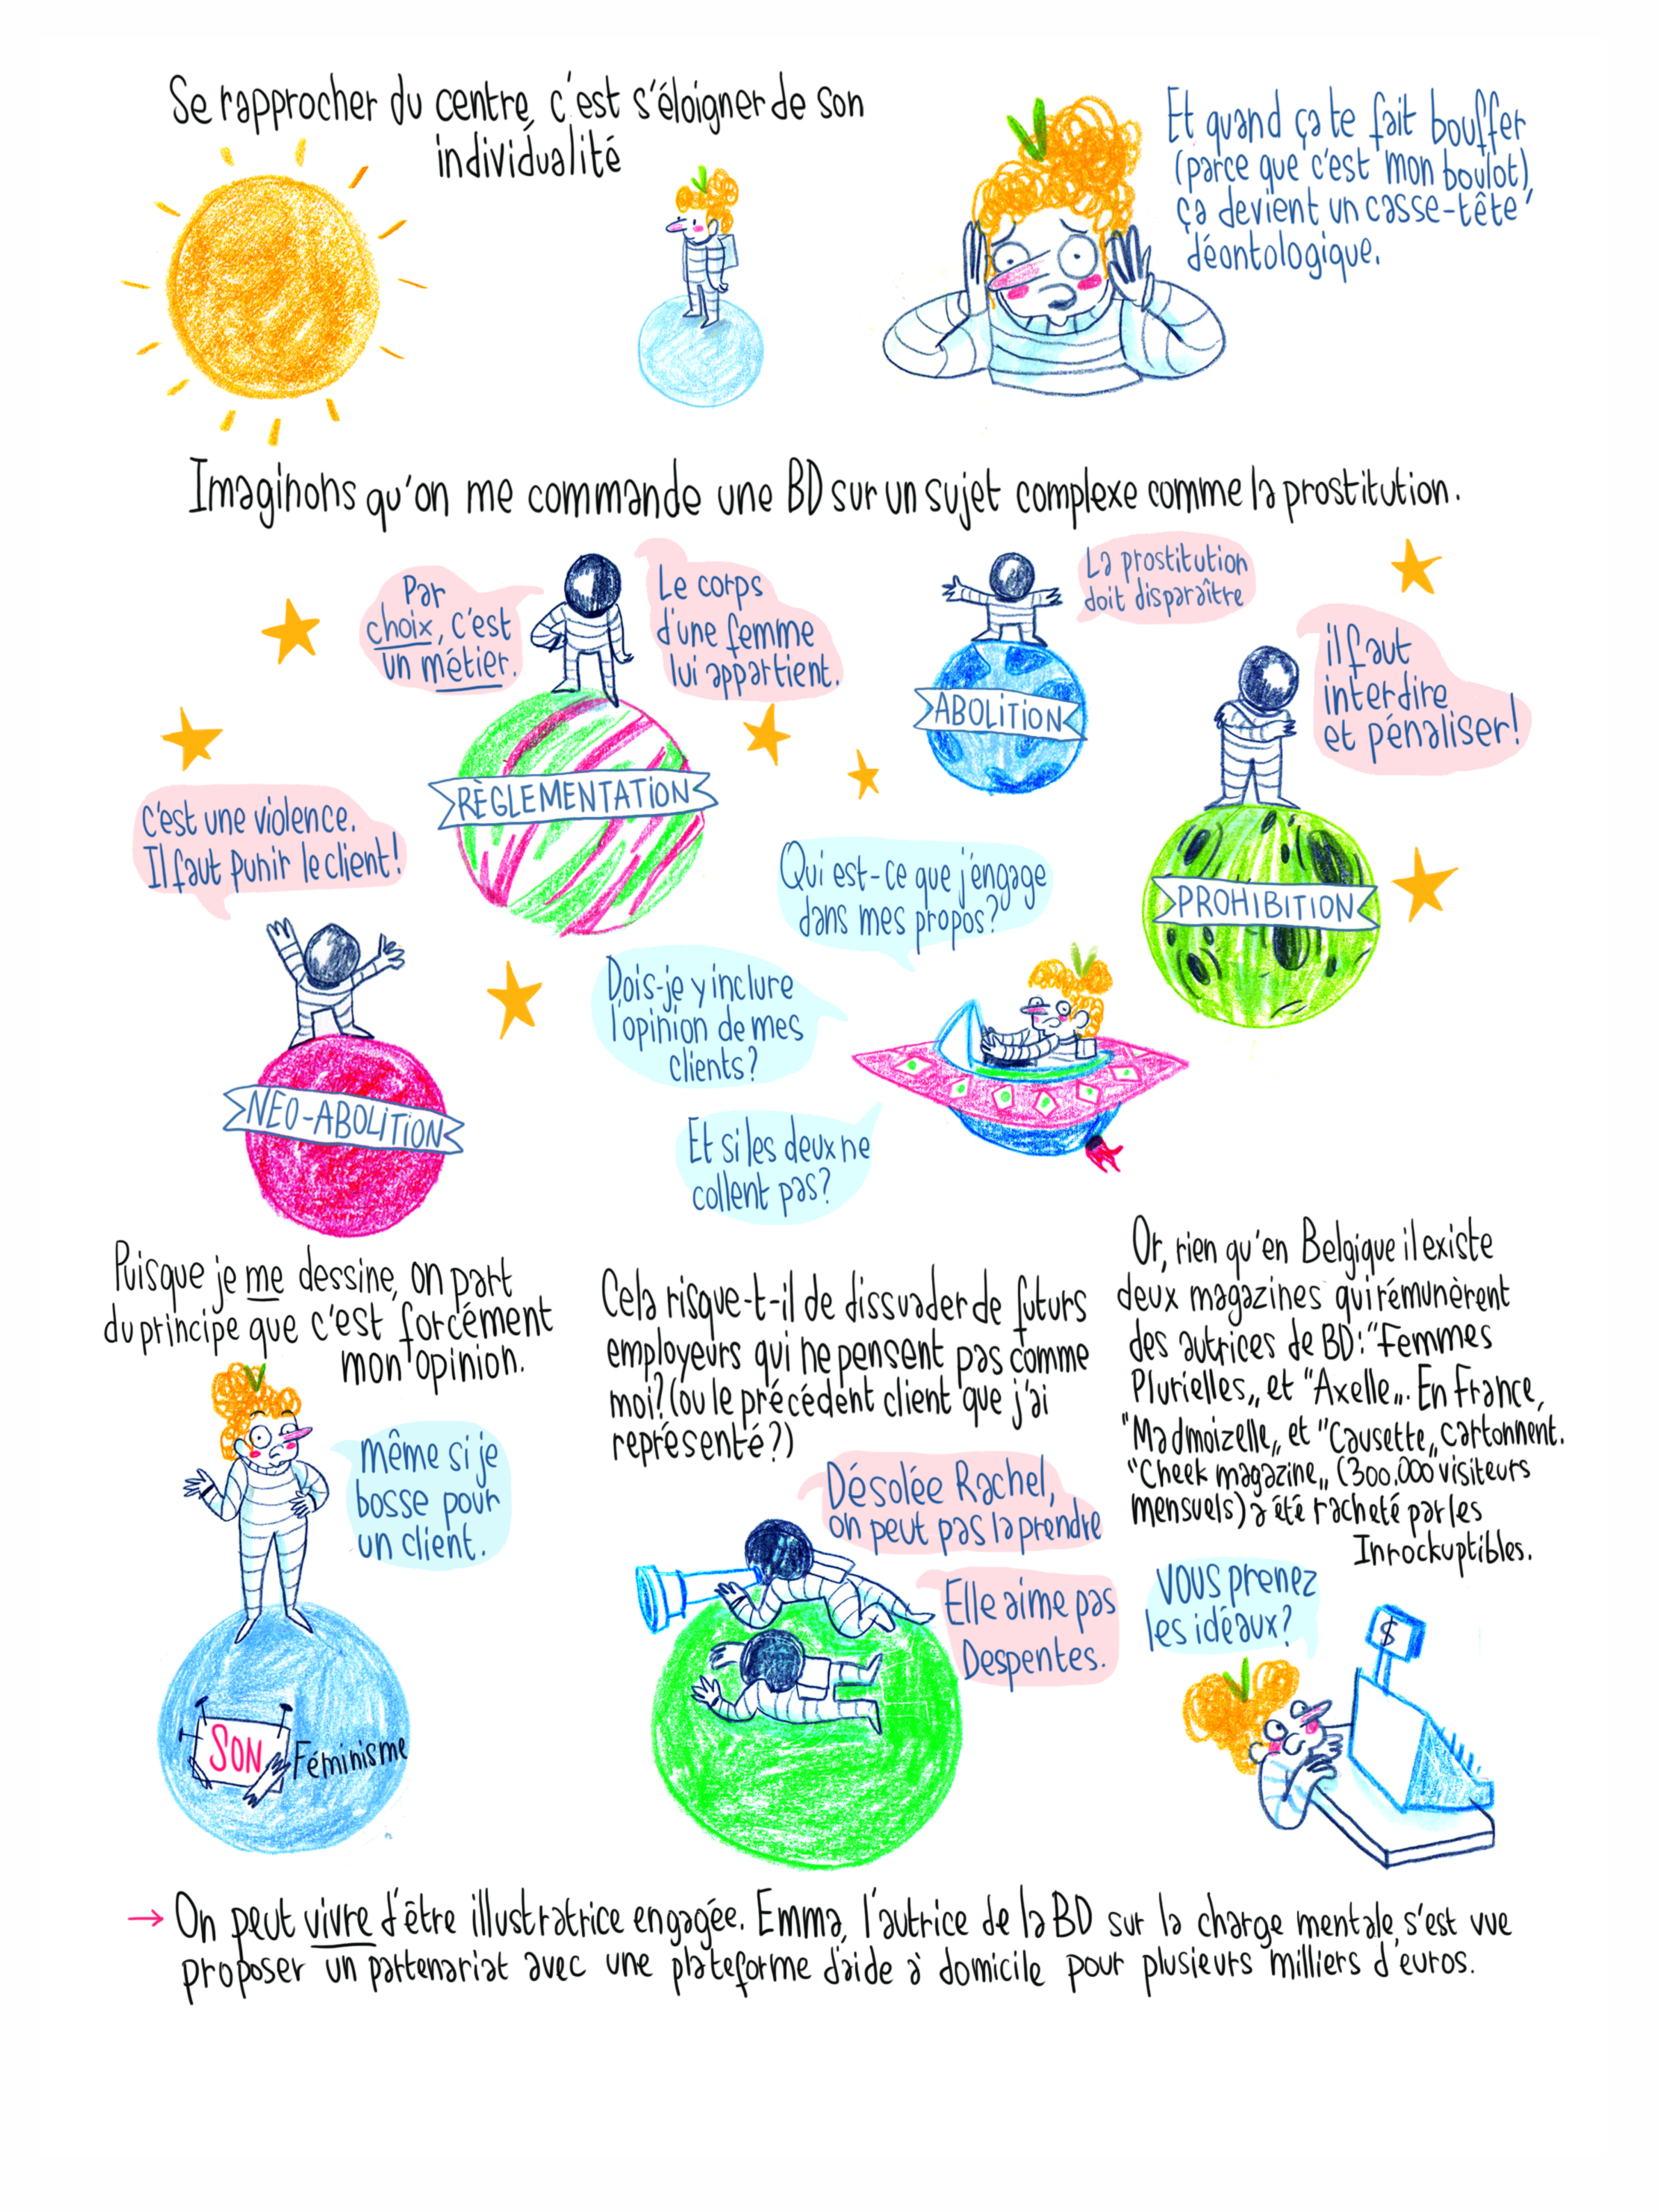 Se rapprocher du centre, c'est s'éloigner de son
individualité
Et quand ça te fait bouffer
(parce que c'est mon boulot),
ça devient un casse-tête
déontologique.
Imaginons qu'on me commande une BD sur un sujet complexe comme la prostitution.
Par
choix, c'est
un métier.
Le corps
d'une femme
lui appartient.
RÈGLEMENTATION
La prostitution
doit disparaître
ABOLITION
il faut
interdire
et pénaliser!
PROHIBITION
C'est une violence.
Il faut punir le client!
NEO-ABOLITION
Qui est-ce que j'engage
dans mes propos?
Dois-je y inclure
l'opinion de mes
clients?
Et si les deux ne
collent pas?
Puisque je me dessine, on part
du principe que c'est forcément
mon opinion.
même si je
bosse pour
un client.
SON Féminisme
Cela risque-t-il de dissuader de futurs
employeurs qui ne pensent pas comme
moi? (ou le précédent client que j'ai
représenté?)
Désolée Rachel,
on peut pas la prendre
Elle aime pas
Despentes.
Or, rien qu'en Belgique il existe
deux magazines qui rémunèrent
des autrices de BD: "Femmes
Plurielles„ et "Axelle„. En France,
"Madmoizelle„ et "Causette„ cartonnent.
"Cheek magazine„ (300.000 visiteurs
mensuels) a été racheté par les
Inrockuptibles.
Vous prenez
les idéaux?
$
→ On peut vivre d'être illustratrice engagée. Emma, l'autrice de la BD sur la charge mentale, s'est vue
proposer un partenariat avec une plateforme d'aide à domicile pour plusieurs milliers d'euros.